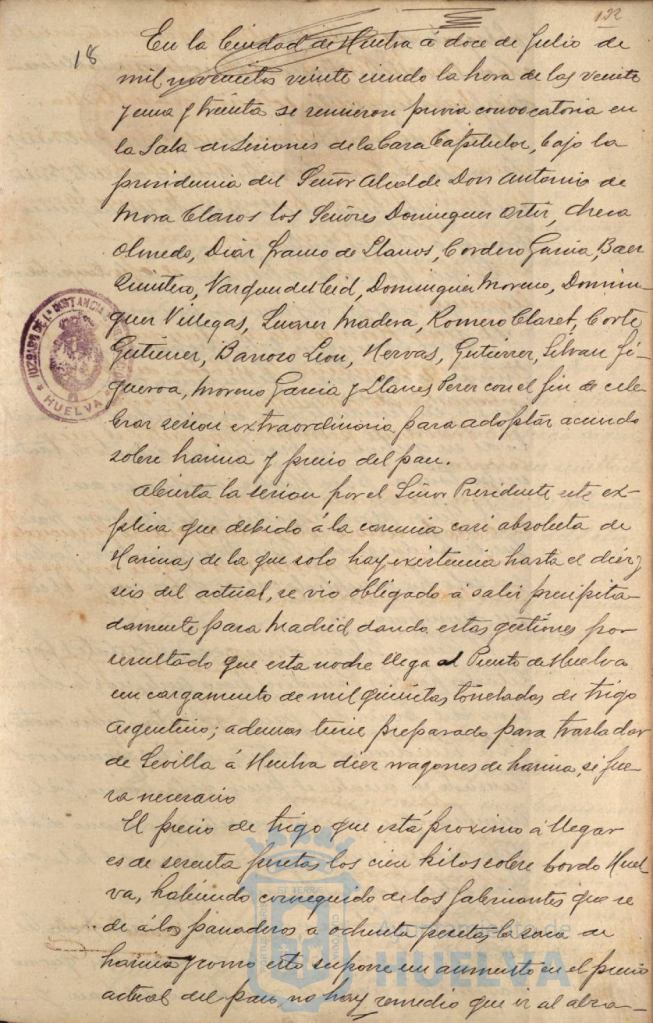 192
18
En la Ciudad de Huelva á doce de Julio de
mil novecientos veinte siendo la hora de las veinte
y una y treinta se reunieron previa convocatoria en
la Sala de Sesiones de la Casa Capitular, bajo la
presidencia del Señor Alcalde Don Antonio de
Mora Claros los Señores Dominguez Ortiz, Checa
Olmedo, Diaz Franco de Llanos, Cordero Garcia, Baez
Quintero, Vazquez del Cid, Dominguez Moreno, Domin-
guez Villegas, Suarez Madera, Romero Claret, Corte
Gutierrez, Barroso Leon, Hervas, Gutierrez, Silvan Fi-
gueroa, Moreno Garcia y Llanes Perez con el fin de cele-
brar sesion extraordinaria para adoptar acuerdo
sobre harina y precio del pan.
Abierta la sesion por el Señor Presidente este ex-
plica que debido á la carencia casi absoluta de
Harinas de la que solo hay existencia hasta el diez y
seis del actual, se vio obligado á salir precipita-
damente para Madrid dando estas gestiones por
resultado que esta noche llega al Puerto de Huelva
un cargamento de mil quinientas toneladas de trigo
Argentino; ademas tiene preparado para trasladar
de Sevilla á Huelva diez wagones de harina, si fue-
ra necesario
El precio de trigo que está proximo á llegar
es de sesenta pesetas los cien kilos sobre bordo Huel
va, habiendo conseguido de los fabricantes que se
dé á los panaderos a ochenta pesetas la saca de
harina y como esto supone un aumento en el precio
actual del pan, no hay remedio que ir al alza-
JUZGADO DE 1ª INSTANCIA
HUELVA
Ayuntamiento de
HUELVA